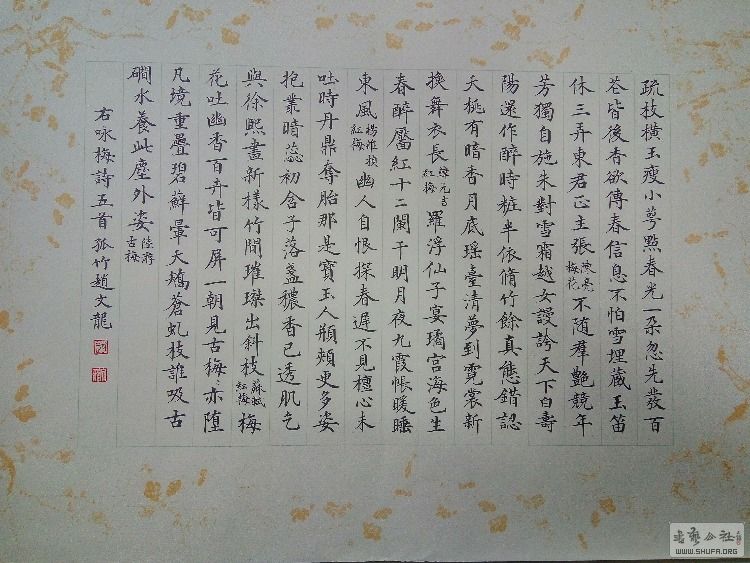 疏枝橫玉瘦小萼點春光一朵忽先發百
花皆後香欲傳春信息不怕雪埋藏玉笛
休三弄東君正主張陳亮梅花不隨羣艷競年
芳獨自施朱對雪霜越女謾誇天下白壽
陽還作醉時粧半依脩竹餘真態錯認
夭桃有暗香月底瑶臺清夢到霓裳新
換舞衣長韓元吉紅梅羅浮仙子宴璚宮海色生
春醉靨紅十二闌干明月夜九霞帳暖睡
東風楊維楨紅梅幽人自恨探春遲不見檀心未
吐時丹鼎奪胎那是寶玉人頩頰更多姿
抱叢暗蕊初含子落盞穠香已透肌乞
與徐熙畫新樣竹間璀璨出斜枝蘇軾紅梅梅
花吐幽香百卉皆可屏一朝見古梅々亦墮
凡境重疊碧蘚暈夭矯蒼虬枝誰吸古
磵水養此塵外姿陸游古梅
右咏梅詩五首孤竹趙文龍
書藝公社
WWW.SHUFA.ORG